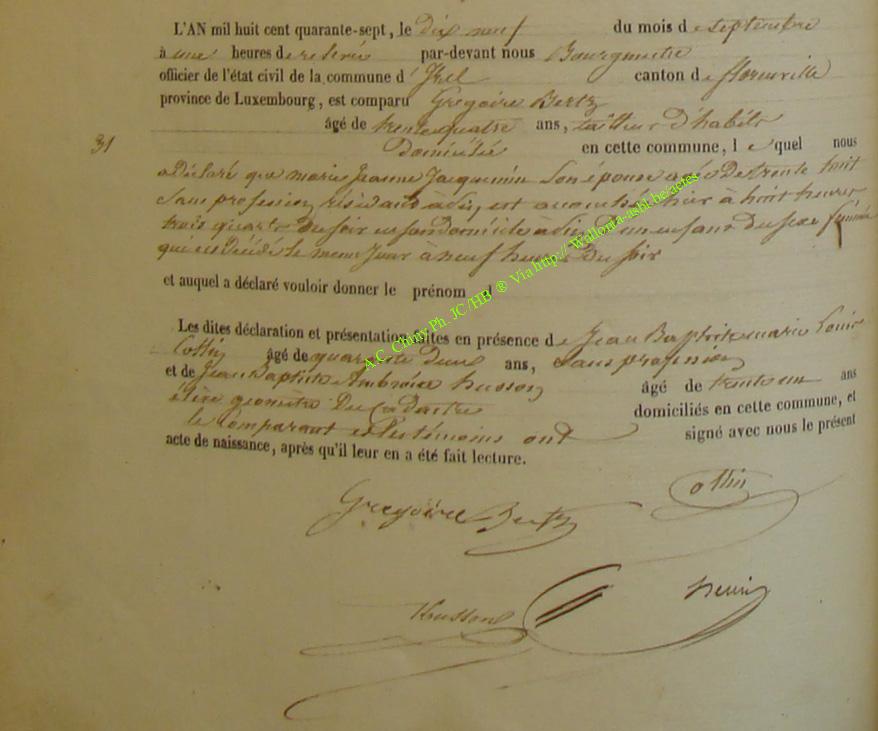 L'AN mil huit cent quarante-sept, le dix neuf du mois de septembre
à une heures de relevée par-devant nous Bourgmestre
officier de l'état civil de la commune d' Izel canton de florenville
province de Luxembourg, est comparu Grégoire Bertz
âgé de trente quatre ans, tailleur d'habits
31 Domicilié en cette commune, l e quel nous
a déclaré que marie Jeanne Jacquemin Son épouse agée de trente huit
Sans profession, résidant à dix, est accouchée hier à huit heures
trois quarts Du soir en son domicile à dix, D'un enfant du sexe féminin
qui est Décédé le meme Jour à neuf heures Du soir
et auquel a déclaré vouloir donner le prénom d
Les dites déclaration et présentation faites en présence de Jean Baptiste marie Louis
Collin âgé de quarante Deux ans, Sans profession
et de Jean Baptiste Ambroise husson âgé de trente un ans
élève géomètre Du Cadastre domiciliés en cette commune, et
le Comparant et les témoins ont signé avec nous le présent
acte de naissance, après qu'il leur en a été fait lecture.
Grégoire Bertz
Collin
husson
A.C. Chiny Ph. JC /HB ® Via http:// Wallonia-asbl.be/actes